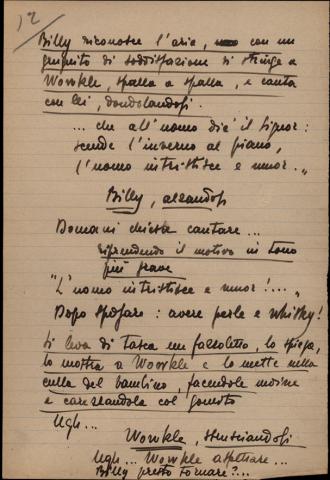 12
Billy riconosce l'aria, con un
grugnito di soddisfazione si stringe a
Wowkle, spalla a spalla, e canta
con lei, dondolandosi.
... che all'uomo diè il Signor:
scende l'inverno al piano,
l'uomo intristisce e muor..."
Billy, alzandosi
Domani chiesa cantare...
riprendendo il motivo in tono
più grave
"L'uomo intristisce e muor!..."
Dopo sposare: avere perle e whisky!
Si leva di tasca un fazzoletto, lo spiega,
lo mostra a Wowkle e lo mette nella
culla del bambino, facendole moine
e carezzandola col gomito
Ugh...
Wowkle, strusciandosi
Ugh... Wowkle aspettare...
Billy presto tornare?...